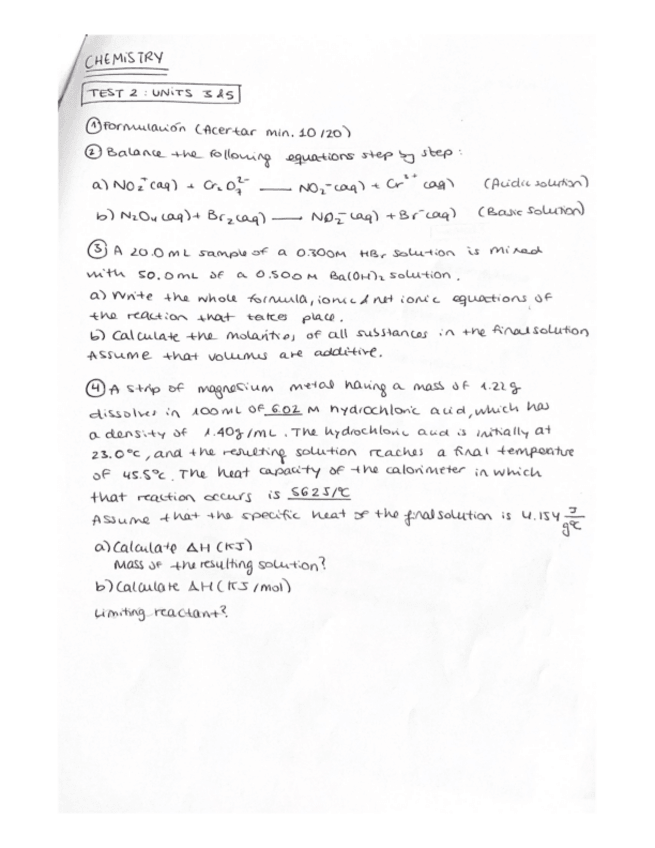 CHEMISTRY
TEST 2: UNITS 3 & 5
① Formulación (Acertar min. 10/20)
② Balance the following equations step by step:
a) NO₂⁺(aq) + Cr₂O₇²⁻ —— NO₂⁻(aq) + Cr³⁺(aq) (Acidic solution)
b) N₂O₄(aq) + Br₂(aq) —— NO₂⁻(aq) + Br⁻(aq) (Basic solution)
③ A 20.0 mL sample of a 0.300M HBr solution is mixed
with 50.0 mL of a 0.500 M Ba(OH)₂ solution.
a) Write the whole formula, ionic & net ionic equations of
the reaction that takes place.
b) Calculate the molarities of all substances in the final solution
Assume that volumes are additive.
④ A strip of magnesium metal having a mass of 1.22 g
dissolves in 100 mL of 6.02 M hydrochloric acid, which has
a density of 1.40g/mL. The hydrochloric acid is initially at
23.0°C, and the resulting solution reaches a final temperature
of 45.5°C. The heat capacity of the calorimeter in which
that reaction occurs is 562 J/°C
Assume that the specific heat of the final solution is 4.184 J/g°C
a) Calculate ΔH (KJ)
Mass of the resulting solution?
b) Calculate ΔH (KJ/mol)
Limiting reactant?